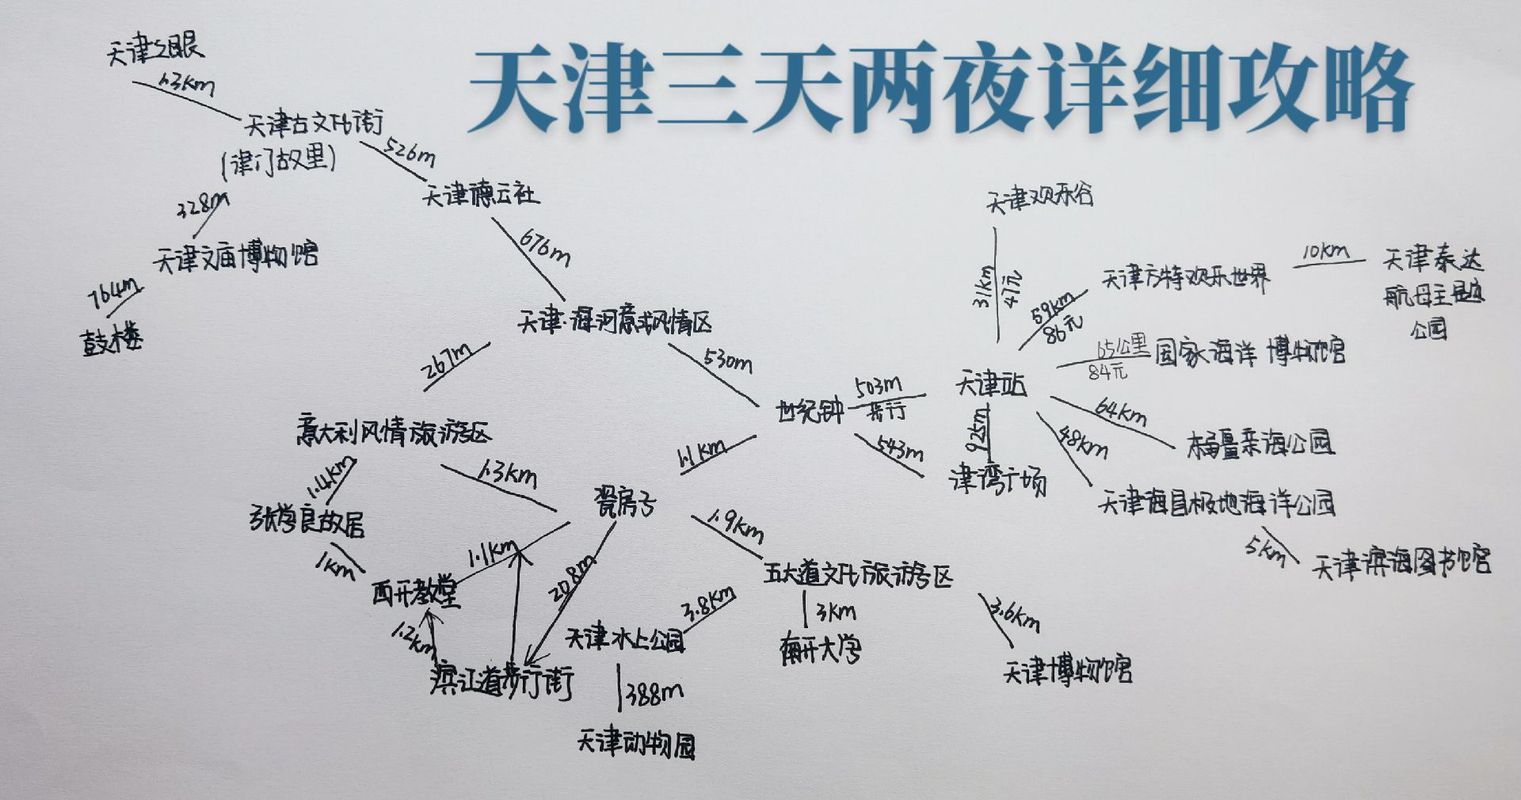 天津三天两夜详细攻略
天津之眼
1.3km
天津古文化街
(津门故里)
526m
天津德云社
328m
天津文庙博物馆
764m
鼓楼
676m
天津·海河意式风情区
267m
530m
意大利风情旅游区
1.4km
1.3km
张学良故居
1km
西开教堂
1.1km
1.2km
滨江道步行街
瓷房子
208m
1.1km
世纪钟
503m
步行
543m
天津站
925m
津湾广场
1.9km
五大道文化旅游区
3.8km
天津水上公园
388m
天津动物园
3km
南开大学
3.6km
天津博物馆
天津欢乐谷
31km
47元
59km
86元
天津方特欢乐世界
10km
天津泰达
航母主题
公园
65公里
84元
国家海洋博物馆
64km
亲海公园
48km
天津海昌极地海洋公园
5km
天津滨海图书馆